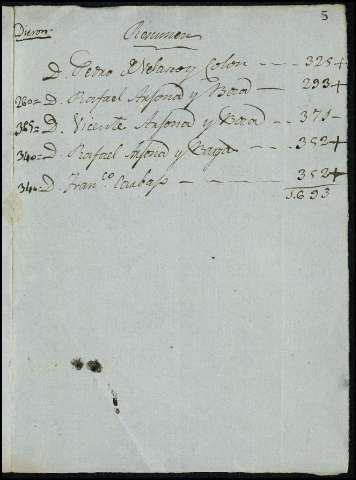 5
Dieron. Resumen
D. Pedro Velano y Colon --- 325+
260= D. Rafael Arjona y Baad — 293+
365= D. Vicente Arjona y Baad -- 371-
340= D. Rafael Arjona y Baya -- 352+
344= D. Fran.co Carbajo — — — 352+
1.693